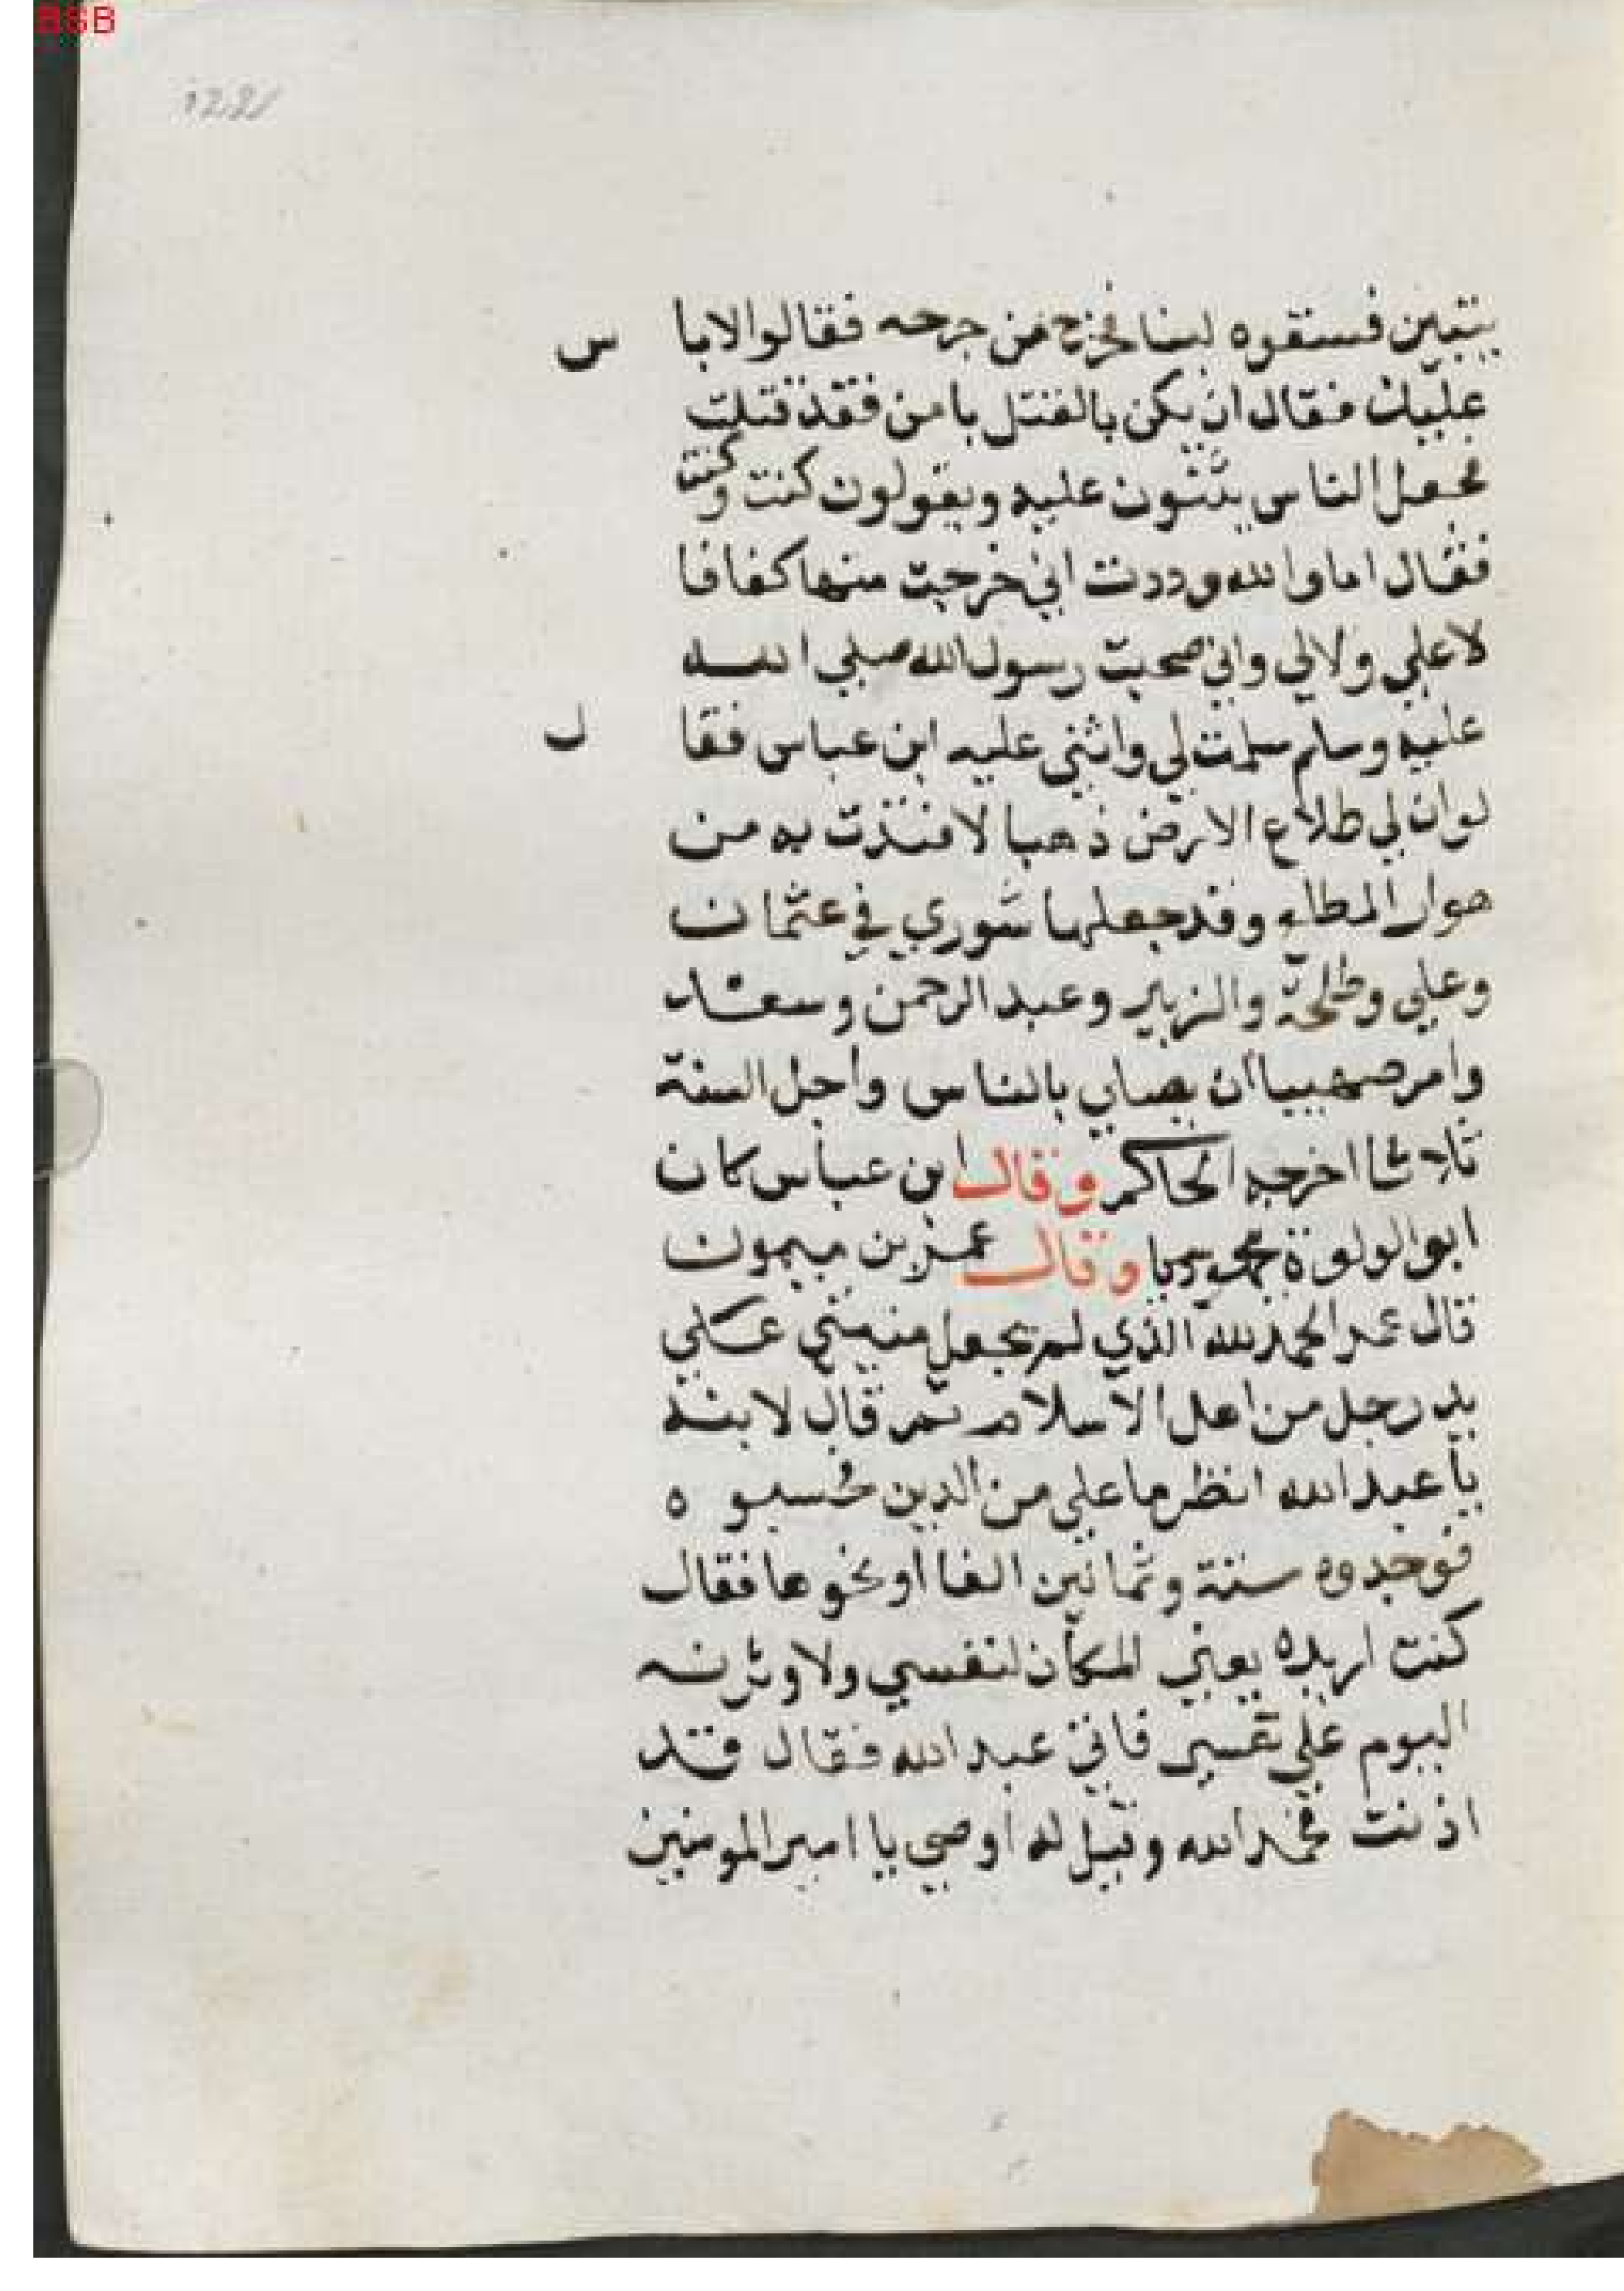 BSB
يتبين فسقوه لبنا فخرج من جرحه فقالوا لا باس
عليك فقال ان يكن بالقتل باس فقد قتلت
فجعل الناس يثنون عليه ويقولون كنت وكنت
فقال اما والله وددت اني خرجت منها كفافا
لا علي ولا لي واني صحبت رسول الله صلي الله
عليه وسلم سلمت لي واثني عليه ابن عباس فقال
لو ان لي طلاع الارض ذهبا لافتديت به من
هوال المطلع وقد جعلها شوري في عثمان
وعلي وطلحة والزبير وعبد الرحمن وسعد
وامر صهيبا ان يصلي بالناس واجل الستة
ثلاثا اخرجه الحاكم وقال ابن عباس كان
ابو الولوة مجوسيا وقال عمر بن ميمون
قال عمر الحمد لله الذي لم يجعل منيتي علي
يد رجل من اهل الاسلام ثم قال لابنه
يا عبد الله انظر ما علي من الدين فحسبوه
فوجدوه ستة وثمانين الفا او نحوها فقال
كنت اريده يعني المكان لنفسي ولاوثرنه
اليوم علي نفسي فاتي عبد الله فقال قد
اذنت فحمد الله وقيل له اوصي يا امير المومنين